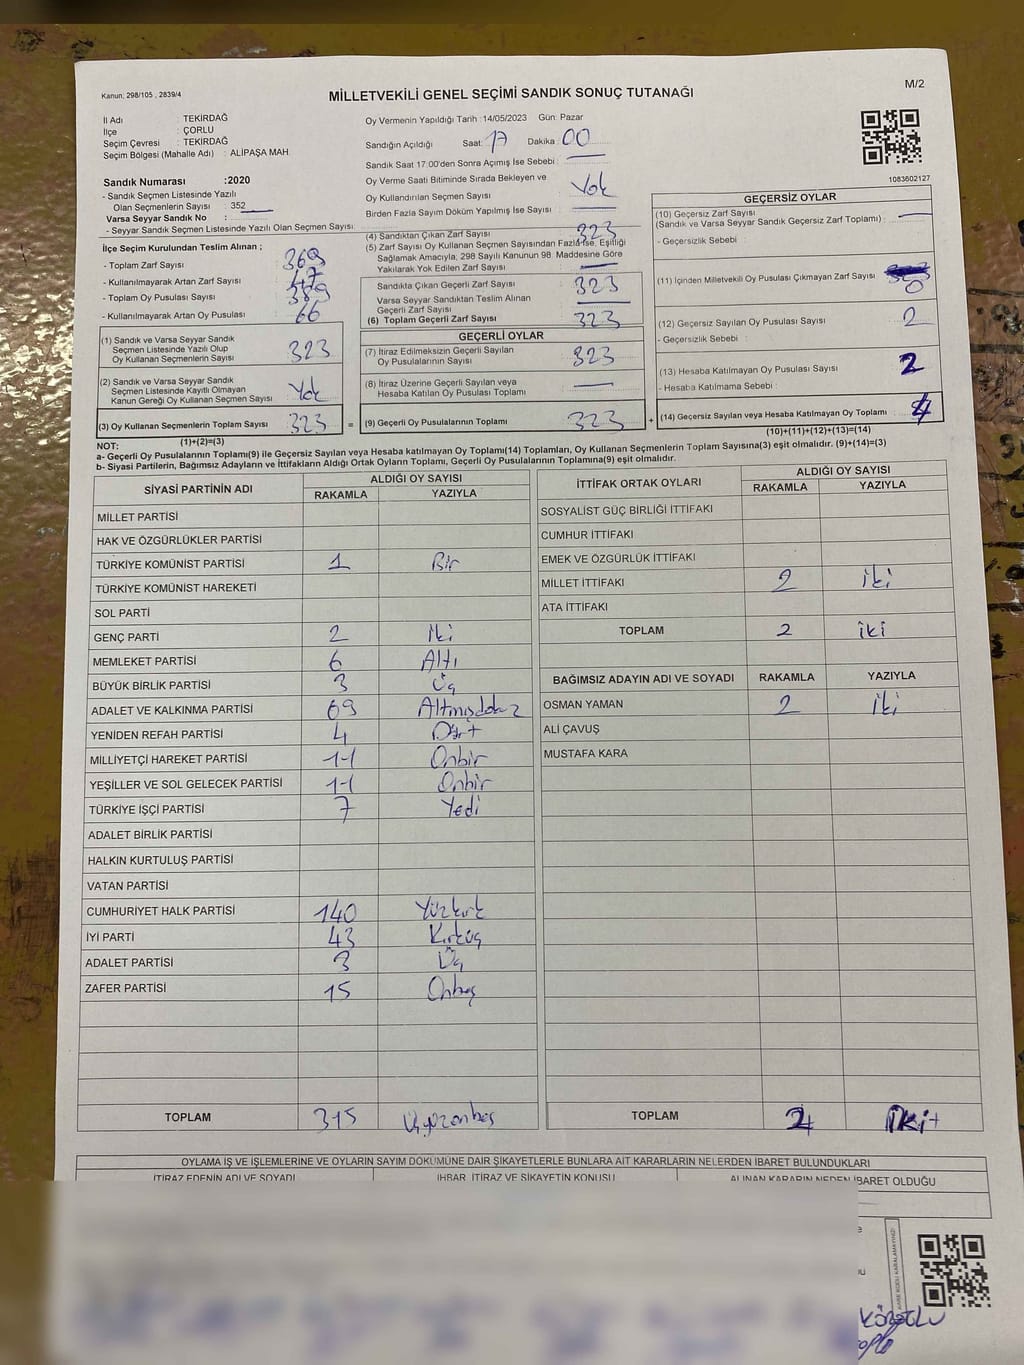 Kanun; 298/105 , 2839/4
M/2
MİLLETVEKİLİ GENEL SEÇİMİ SANDIK SONUÇ TUTANAĞI
İl Adı : TEKİRDAĞ
İlçe : ÇORLU
Seçim Çevresi : TEKİRDAĞ
Seçim Bölgesi (Mahalle Adı) : ALİPAŞA MAH.
Sandık Numarası :2020
- Sandık Seçmen Listesinde Yazılı
Olan Seçmenlerin Sayısı : 352
Varsa Seyyar Sandık No :
- Seyyar Sandık Seçmen Listesinde Yazılı Olan Seçmen Sayısı:
İlçe Seçim Kurulundan Teslim Alınan ;
- Toplam Zarf Sayısı :
- Kullanılmayarak Artan Zarf Sayısı : 47
- Toplam Oy Pusulası Sayısı :
- Kullanılmayarak Artan Oy Pusulası : 66
(1) Sandık ve Varsa Seyyar Sandık
Seçmen Listesinde Yazılı Olup
Oy Kullanan Seçmenlerin Sayısı : 323
(2) Sandık ve Varsa Seyyar Sandık
Seçmen Listesinde Kayıtlı Olmayan
Kanun Gereği Oy Kullanan Seçmen Sayısı : Yok
(3) Oy Kullanan Seçmenlerin Toplam Sayısı : 323
(1)+(2)=(3)
Oy Vermenin Yapıldığı Tarih :14/05/2023 Gün: Pazar
Sandığın Açıldığı Saat: 17 Dakika : 00
Sandık Saat 17:00'den Sonra Açımış İse Sebebi :
Oy Verme Saati Bitiminde Sırada Bekleyen ve
Oy Kullandırılan Seçmen Sayısı : Yok
Birden Fazla Sayım Döküm Yapılmış İse Sayısı :
(4) Sandıktan Çıkan Zarf Sayısı : 323
(5) Zarf Sayısı Oy Kullanan Seçmen Sayısından Fazla İse, Eşitliği
Sağlamak Amacıyla; 298 Sayılı Kanunun 98. Maddesine Göre
Yakılarak Yok Edilen Zarf Sayısı :
Sandıkta Çıkan Geçerli Zarf Sayısı : 323
Varsa Seyyar Sandıktan Teslim Alınan
Geçerli Zarf Sayısı :
(6) Toplam Geçerli Zarf Sayısı : 323
GEÇERLİ OYLAR
(7) İtiraz Edilmeksizin Geçerli Sayılan
Oy Pusulalarının Sayısı : 323
(8) İtiraz Üzerine Geçerli Sayılan veya
Hesaba Katılan Oy Pusulası Toplamı :
= (9) Geçerli Oy Pusulalarının Toplamı : 323 +
1083602127
GEÇERSİZ OYLAR
(10) Geçersiz Zarf Sayısı
(Sandık ve Varsa Seyyar Sandık Geçersiz Zarf Toplamı) :
- Geçersizlik Sebebi :
(11) İçinden Milletvekili Oy Pusulası Çıkmayan Zarf Sayısı : 0
(12) Geçersiz Sayılan Oy Pusulası Sayısı : 2
- Geçersizlik Sebebi :
(13) Hesaba Katılmayan Oy Pusulası Sayısı : 2
- Hesaba Katılmama Sebebi :
(14) Geçersiz Sayılan veya Hesaba Katılmayan Oy Toplamı : 4
(10)+(11)+(12)+(13)=(14)
NOT:
a- Geçerli Oy Pusulalarının Toplamı(9) ile Geçersiz Sayılan veya Hesaba katılmayan Oy Toplamı(14) Toplamları, Oy Kullanan Seçmenlerin Toplam Sayısına(3) eşit olmalıdır. (9)+(14)=(3)
b- Siyasi Partilerin, Bağımsız Adayların ve İttifakların Aldığı Ortak Oyların Toplamı, Geçerli Oy Pusulalarının Toplamına(9) eşit olmalıdır.
SİYASİ PARTİNİN ADI ALDIĞI OY SAYISI
RAKAMLA YAZIYLA
MİLLET PARTİSİ
HAK VE ÖZGÜRLÜKLER PARTİSİ
TÜRKİYE KOMÜNİST PARTİSİ 1 Bir
TÜRKİYE KOMÜNİST HAREKETİ
SOL PARTİ
GENÇ PARTİ 2 İki
MEMLEKET PARTİSİ 6 Altı
BÜYÜK BİRLİK PARTİSİ 3 Üç
ADALET VE KALKINMA PARTİSİ 69 Altmışdokuz
YENİDEN REFAH PARTİSİ 4 Dört
MİLLİYETÇİ HAREKET PARTİSİ 11 Onbir
YEŞİLLER VE SOL GELECEK PARTİSİ 11 Onbir
TÜRKİYE İŞÇİ PARTİSİ 7 Yedi
ADALET BİRLİK PARTİSİ
HALKIN KURTULUŞ PARTİSİ
VATAN PARTİSİ
CUMHURİYET HALK PARTİSİ 140 Yüzkırk
İYİ PARTİ 43 Kırküç
ADALET PARTİSİ 3 Üç
ZAFER PARTİSİ 15 Onbeş
TOPLAM 315 Üçyüzonbeş
İTTİFAK ORTAK OYLARI ALDIĞI OY SAYISI
RAKAMLA YAZIYLA
SOSYALİST GÜÇ BİRLİĞİ İTTİFAKI
CUMHUR İTTİFAKI
EMEK VE ÖZGÜRLÜK İTTİFAKI
MİLLET İTTİFAKI 2 iki
ATA İTTİFAKI
TOPLAM 2 iki
BAĞIMSIZ ADAYIN ADI VE SOYADI RAKAMLA YAZIYLA
OSMAN YAMAN 2 iki
ALİ ÇAVUŞ
MUSTAFA KARA
TOPLAM 2 iki
OYLAMA İŞ VE İŞLEMLERİNE VE OYLARIN SAYIM DÖKÜMÜNE DAİR ŞİKAYETLERLE BUNLARA AİT KARARLARIN NELERDEN İBARET BULUNDUKLARI
İTİRAZ EDENİN ADI VE SOYADI İHBAR, İTİRAZ VE ŞİKAYETİN KONUSU ALINAN KARARIN NEDEN İBARET OLDUĞU